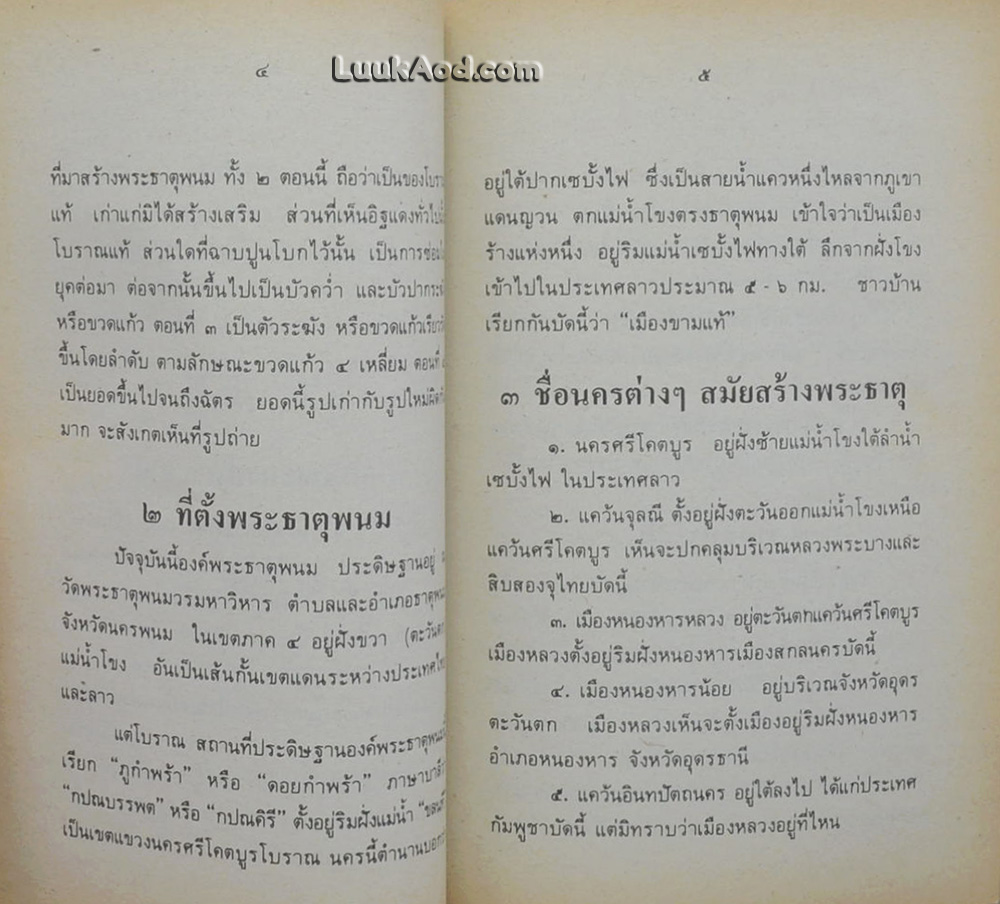 LuukAod.com
๔
ที่มาสร้างพระธาตุพนม ทั้ง ๒ ตอนนี้ ถือว่าเป็นของโบรา
แท้ เก่าแก่มิได้สร้างเสริม ส่วนที่เห็นอิฐแดงทั่วไป
โบราณแท้ ส่วนใดที่ฉาบปูนโบกไว้นั้น เป็นการซ่อม
ยุคต่อมา ต่อจากนั้นขึ้นไปเป็นบัวคว่ำ และบัวปากระ
หรือขวดแก้ว ตอนที่ ๓ เป็นตัวระฆัง หรือขวดแก้วเรียว
ขึ้นโดยลำดับ ตามลักษณะขวดแก้ว ๔ เหลี่ยม ตอนที่
เป็นยอดขึ้นไปจนถึงฉัตร ยอดนี้รูปเก่ากับรูปใหม่ผิด
มาก จะสังเกตเห็นที่รูปถ่าย
๒ ที่ตั้งพระธาตุพนม
ปัจจุบันนี้องค์พระธาตุพนม ประดิษฐานอยู่
วัดพระธาตุพนมวรมหาวิหาร ตำบลและอำเภอธาตุพน
จังหวัดนครพนม ในเขตภาค ๔ อยู่ฝั่งขวา (ตะวันตก
แม่น้ำโขง อันเป็นเส้นกั้นเขตแดนระหว่างประเทศไทย
และลาว
แต่โบราณ สถานที่ประดิษฐานองค์พระธาตุพนม
เรียก “ภูกำพร้า” หรือ “ดอยกำพร้า” ภาษาบาลี
“กปณบรรพต” หรือ “กปณคีรี” ตั้งอยู่ริมฝั่งแม่น้ำ
เป็นเขตแขวงนครศรีโคตบูรโบราณ นครนี้ตำนานบอก
๕
อยู่ใต้ปากเซบั้งไฟ ซึ่งเป็นสายน้ำแควหนึ่งไหลจากภูเขา
แดนญวน ตกแม่น้ำโขงตรงธาตุพนม เข้าใจว่าเป็นเมือง
ร้างแห่งหนึ่ง อยู่ริมแม่น้ำเซบั้งไฟทางใต้ ลึกจากฝั่งโขง
เข้าไปในประเทศลาวประมาณ ๕ - ๖ กม. ชาวบ้าน
เรียกกันบัดนี้ว่า “เมืองขามแท้”
๓ ชื่อนครต่างๆ สมัยสร้างพระธาตุ
๑. นครศรีโคตบูร อยู่ฝั่งซ้ายแม่น้ำโขงใต้ลำน้ำ
เซบั้งไฟ ในประเทศลาว
๒. แคว้นจุลณี ตั้งอยู่ฝั่งตะวันออกแม่น้ำโขงเหนือ
แคว้นศรีโคตบูร เห็นจะปกคลุมบริเวณหลวงพระบางและ
สิบสองจุไทยบัดนี้
๓. เมืองหนองหารหลวง อยู่ตะวันตกแคว้นศรีโคตบูร
เมืองหลวงตั้งอยู่ริมฝั่งหนองหารเมืองสกลนครบัดนี้
๔. เมืองหนองหารน้อย อยู่บริเวณจังหวัดอุดร
ตะวันตก เมืองหลวงเห็นจะตั้งเมืองอยู่ริมฝั่งหนองหาร
อำเภอหนองหาร จังหวัดอุดรธานี
๕. แคว้นอินทปัตถนคร อยู่ใต้ลงไป ได้แก่ประเทศ
กัมพูชาบัดนี้ แต่มิทราบว่าเมืองหลวงอยู่ที่ไหน